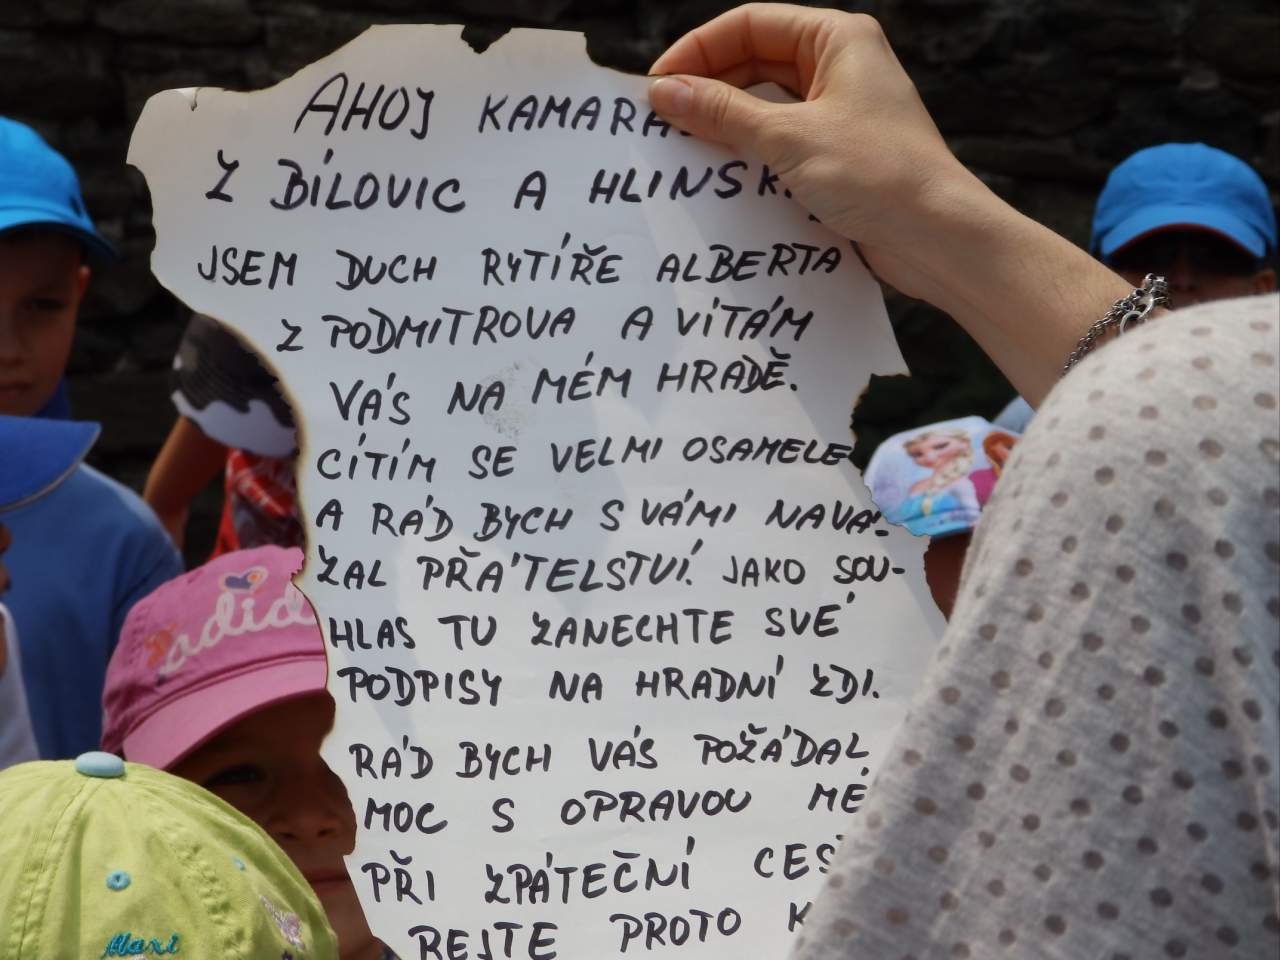 AHOJ
Z BÍLOVIC A
JSEM DUCH RYTÍŘE ALBERTA
Z PODMITROVA A VÍTÁM
VÁS NA MÉM HRADĚ.
CÍTÍM SE VELMI OSAMELE
A RÁD BYCH S VÁMI NAVÁ-
ZAL PŘÁTELSTVÍ. JAKO SOU-
HLAS TU ZANECHTE SVÉ
PODPISY NA HRADNÍ ZDI.
RÁD BYCH VÁS POŽÁDAL
MOC S OPRAVOU MÉ
PŘI ZPÁTEČNÍ
REJTE PROTO
adid
Maxi